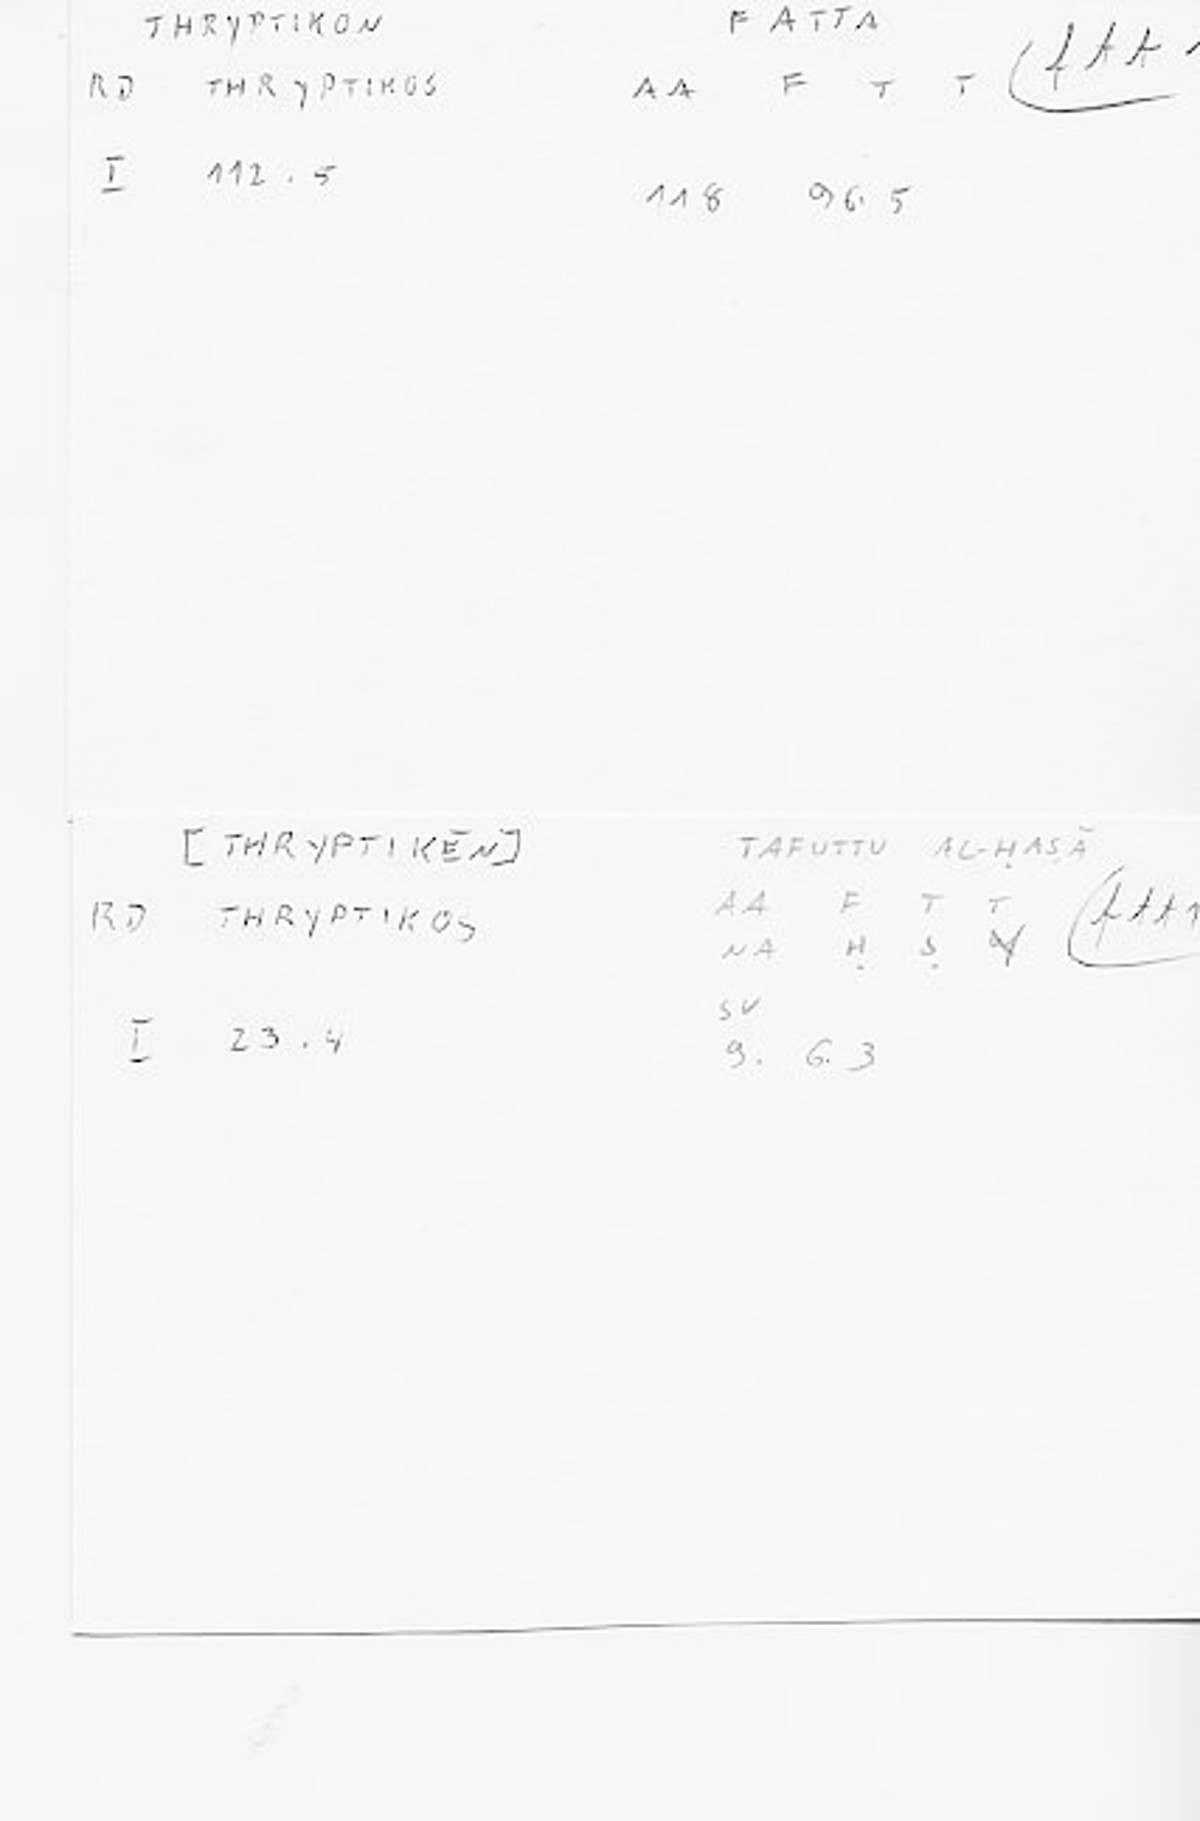 THRYPTIKON FATTA
RD THRYPTIKOS AA F T T
I 112.5 118 96.5
[THRYPTIKĒN] TAFUTTU AL-ḤAṢĀ
RD THRYPTIKOS AA F T T
NA Ḥ Ṣ Y
SV
I 23.4 9. 6.3